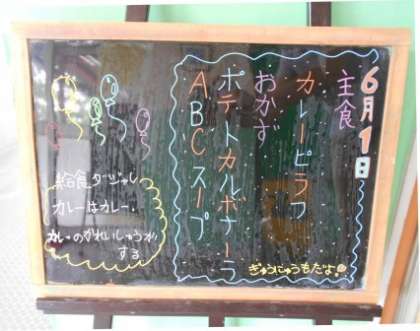 6月1日
主食
カレーピラフ
おかず
ポテトカルボナーラ
ABCスープ
ぎゅうにゅうもだよ!
給食ダージャレ
カレーはカレー、
カレーのかれいしゅうが
する